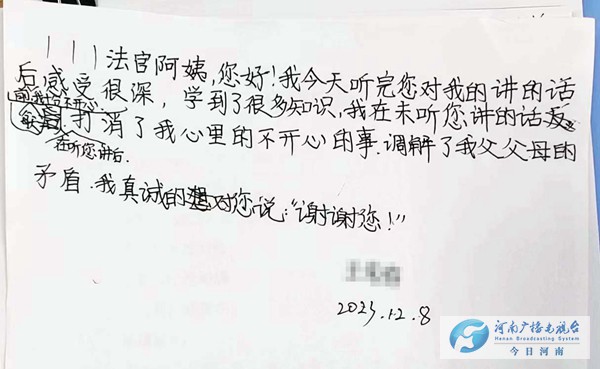 111法官阿姨,您好!我今天听完您对我的讲的话
后感受很深，学到了很多知识,我在未听您讲的话
前我 不开心.
打消了我心里的不开心的事.调解了我父父母的
在听您讲后.
矛盾.我真诚的 对您说:“谢谢您!”
2023.12.8
河南广播电视台
Henan Broadcasting System
今日河南